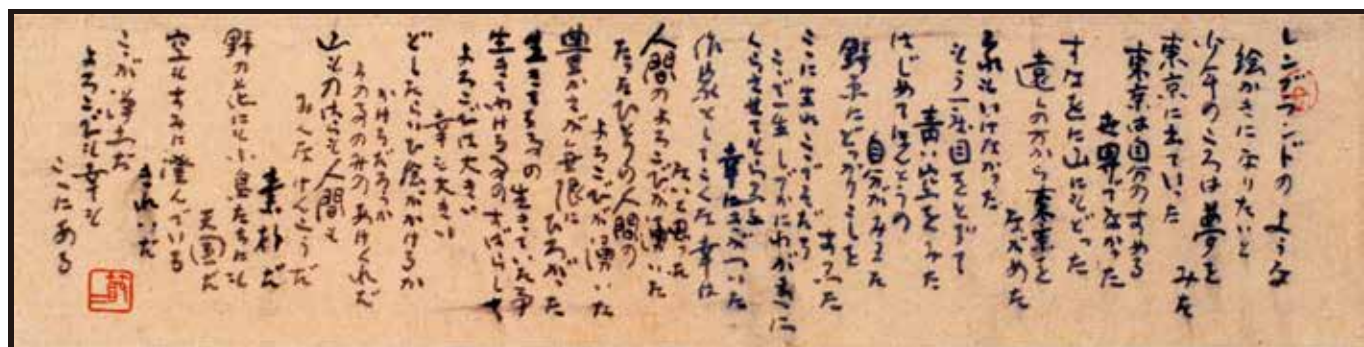 レンブランドの ような
絵かきになりたいと
少年のころは夢を
みた
東京に出ていった
東京は自分のすめる
世界でなかった
すなおに山にもどった
遠くの方から東京を
ながめた
それもいけなかった
もう一度目をとじて
青い空をみた
はじめてほんとうの
自分がみえた
野末にどっかりこしを
すえた
ここに生れここでそだち
ここで一生しずかにわがまゝに
くらさせてもらえる
幸にきがついた
作家としてこんな幸は
ないと思った
人間のよろこびが湧いた
たったひとりの人間の
よろこびが湧いた
豊かさが無限に
ひろがった
生きてをるの
生きていた事
生きてゆけるのすばらしさ
よろこびは大きい
幸も大きい
どしたらいひ絵がかけるか
かけるだろうか
そのためのみのあけくれだ
山も川も人間も
みんなけっこうだ
素朴だ
野の花にも小鳥たちにも
天国だ
空もすみに澄んでいる
きれいだ
ここが浄土だ
よろこびも幸も
ここにある